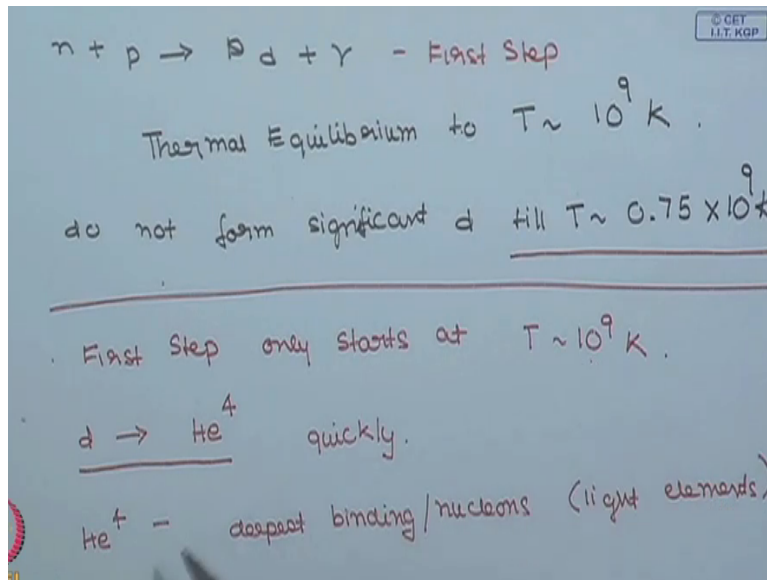 © CET
I.I.T. KGP
n + p → d + γ - First Step
Thermal Equilibrium to T ~ 10⁹ K.
do not form significant d till T ~ 0.75 × 10⁹ K
First Step only starts at T ~ 10⁹ K.
d → He⁴ quickly.
He⁴ - deepest binding/nucleons (light elements)